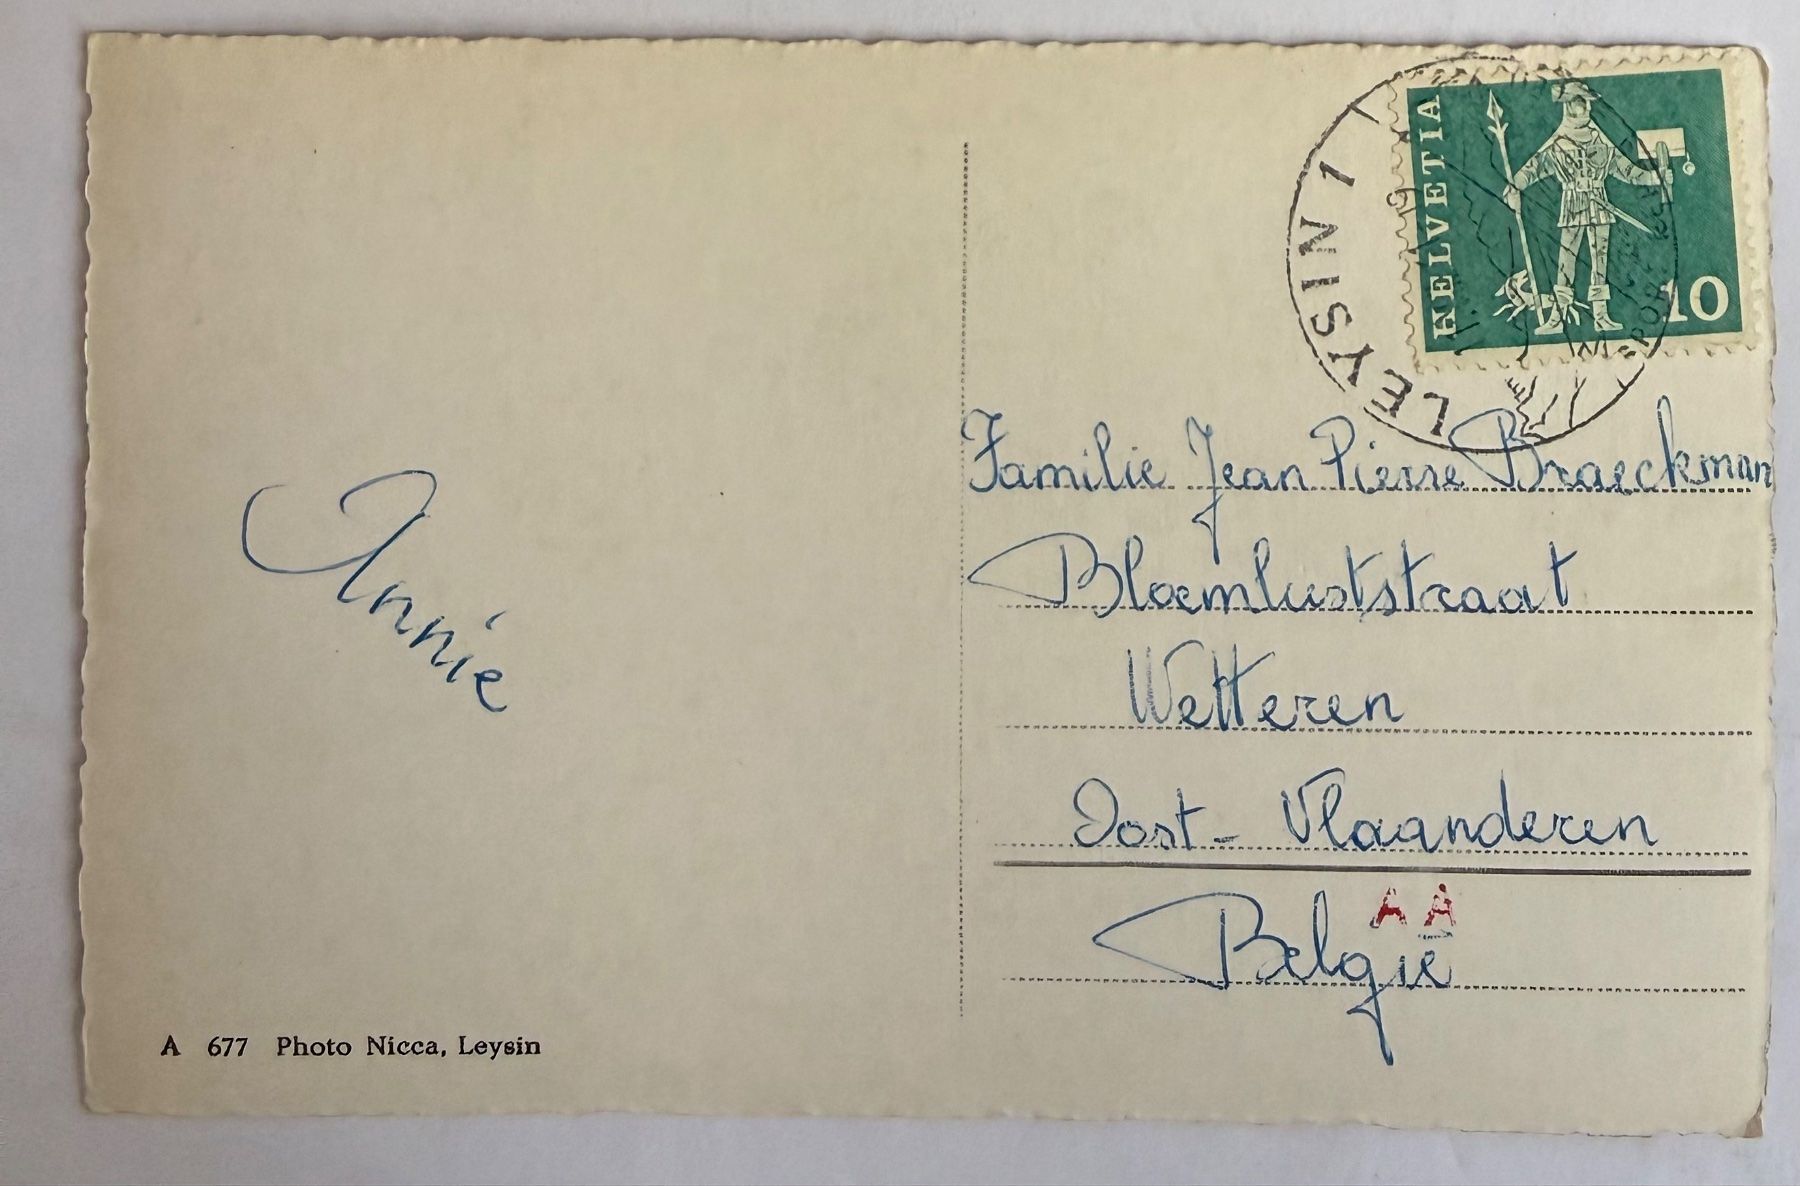 HELVETIA
10
LEYSIN 1
Familie Jean Pierre Braeckman
Bloemluststraat
Wetteren
Oost-Vlaanderen
België
AA
Annie
A 677 Photo Nicca, Leysin